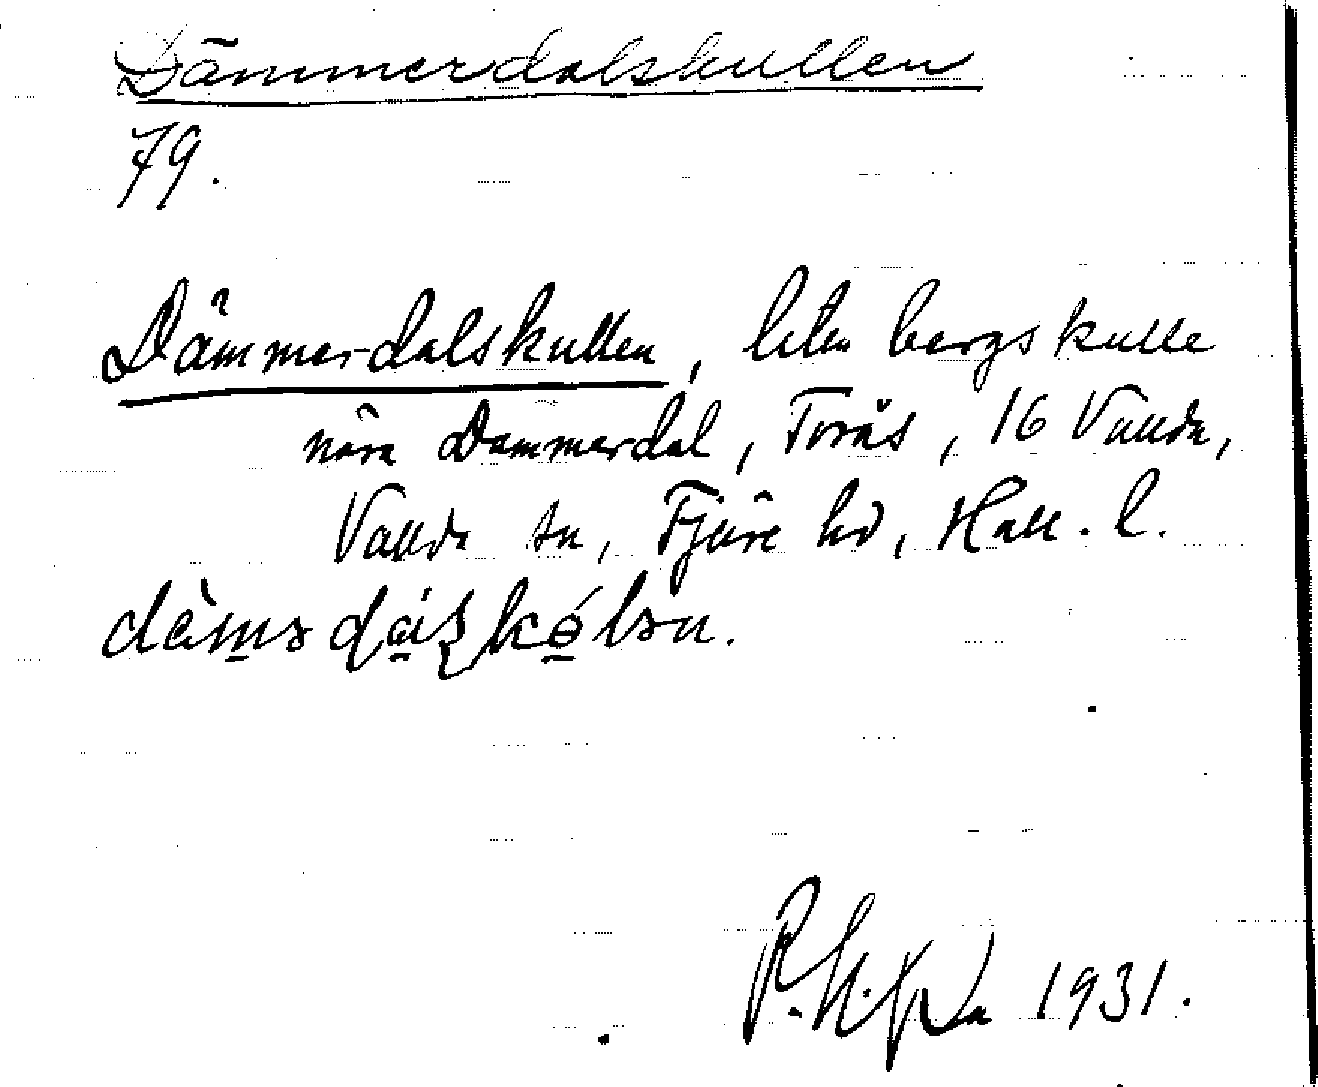 Dämmerdalskullen
79.
Dämmerdalskullen, liten bergskulle
nära Dammerdal, Torås, 16 Vallda,
Vallda sn, Fjäre hd, Hall. l.
1931.